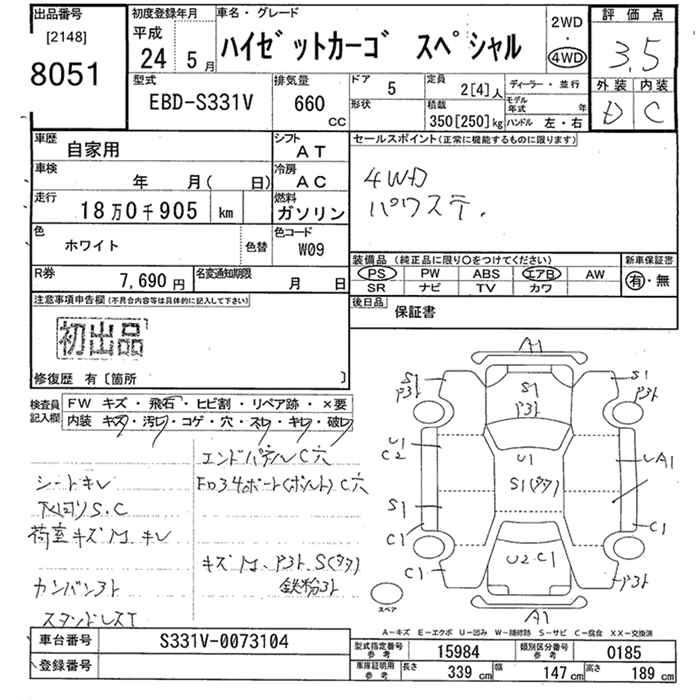 出品番号
[2148]
8051
初度登録年月
平成
24年 5月
車名・グレード
ハイゼットカーゴ スペシャル
2WD
・
4WD
評価点
3.5
外装 内装
D C
型式
EBD-S331V
排気量
660
CC
ドア 5
形状
定員 2[4]人
積載 350[250]kg
ディーラー・並行
モデル年式 年
ハンドル 左・右
車歴 自家用
シフト AT
車検 年 月( 日)
冷房 AC
走行 18万0千905 km
燃料 ガソリン
色 ホワイト
色替
色コード W09
R券 7,690円
名変通知期限 月 日
セールスポイント(正常に機能するものに限ります)
4WD
パワステ.
装備品 (純正品に限り○をつけてください)
PS PW ABS エアB AW
SR ナビ TV カワ
新車保証書
有・無
後日品
保証書
注意事項申告欄(不具合内容等は具体的に記入して下さい)
初出品
修復歴 有[箇所 ]
検査員記入欄
FW キズ・飛石・ヒビ割・リペア跡・×要
内装 キズ・汚レ・コゲ・穴・スレ・キレ・破レ
エンドパネルC穴
シートキレ
下回りS.C
荷室キズM.キレ
カンバン外ト
A1
S1
P外ト
S1
P外ト
S1
P外ト
U1
C2
U1
S1(タタ)
A1
S1
C1
C1
C1
U2.C1
P外ト
A1
スペア
A-キズ E-エクボ U-凹み W-補修跡 S-サビ C-腐食 XX-交換済
車台番号 S331V-0073104
登録番号
型式指定番号 参考 15984
類別区分番号 参考 0185
車庫証明用 参考 長さ 339cm 幅 147cm 高さ 189cm